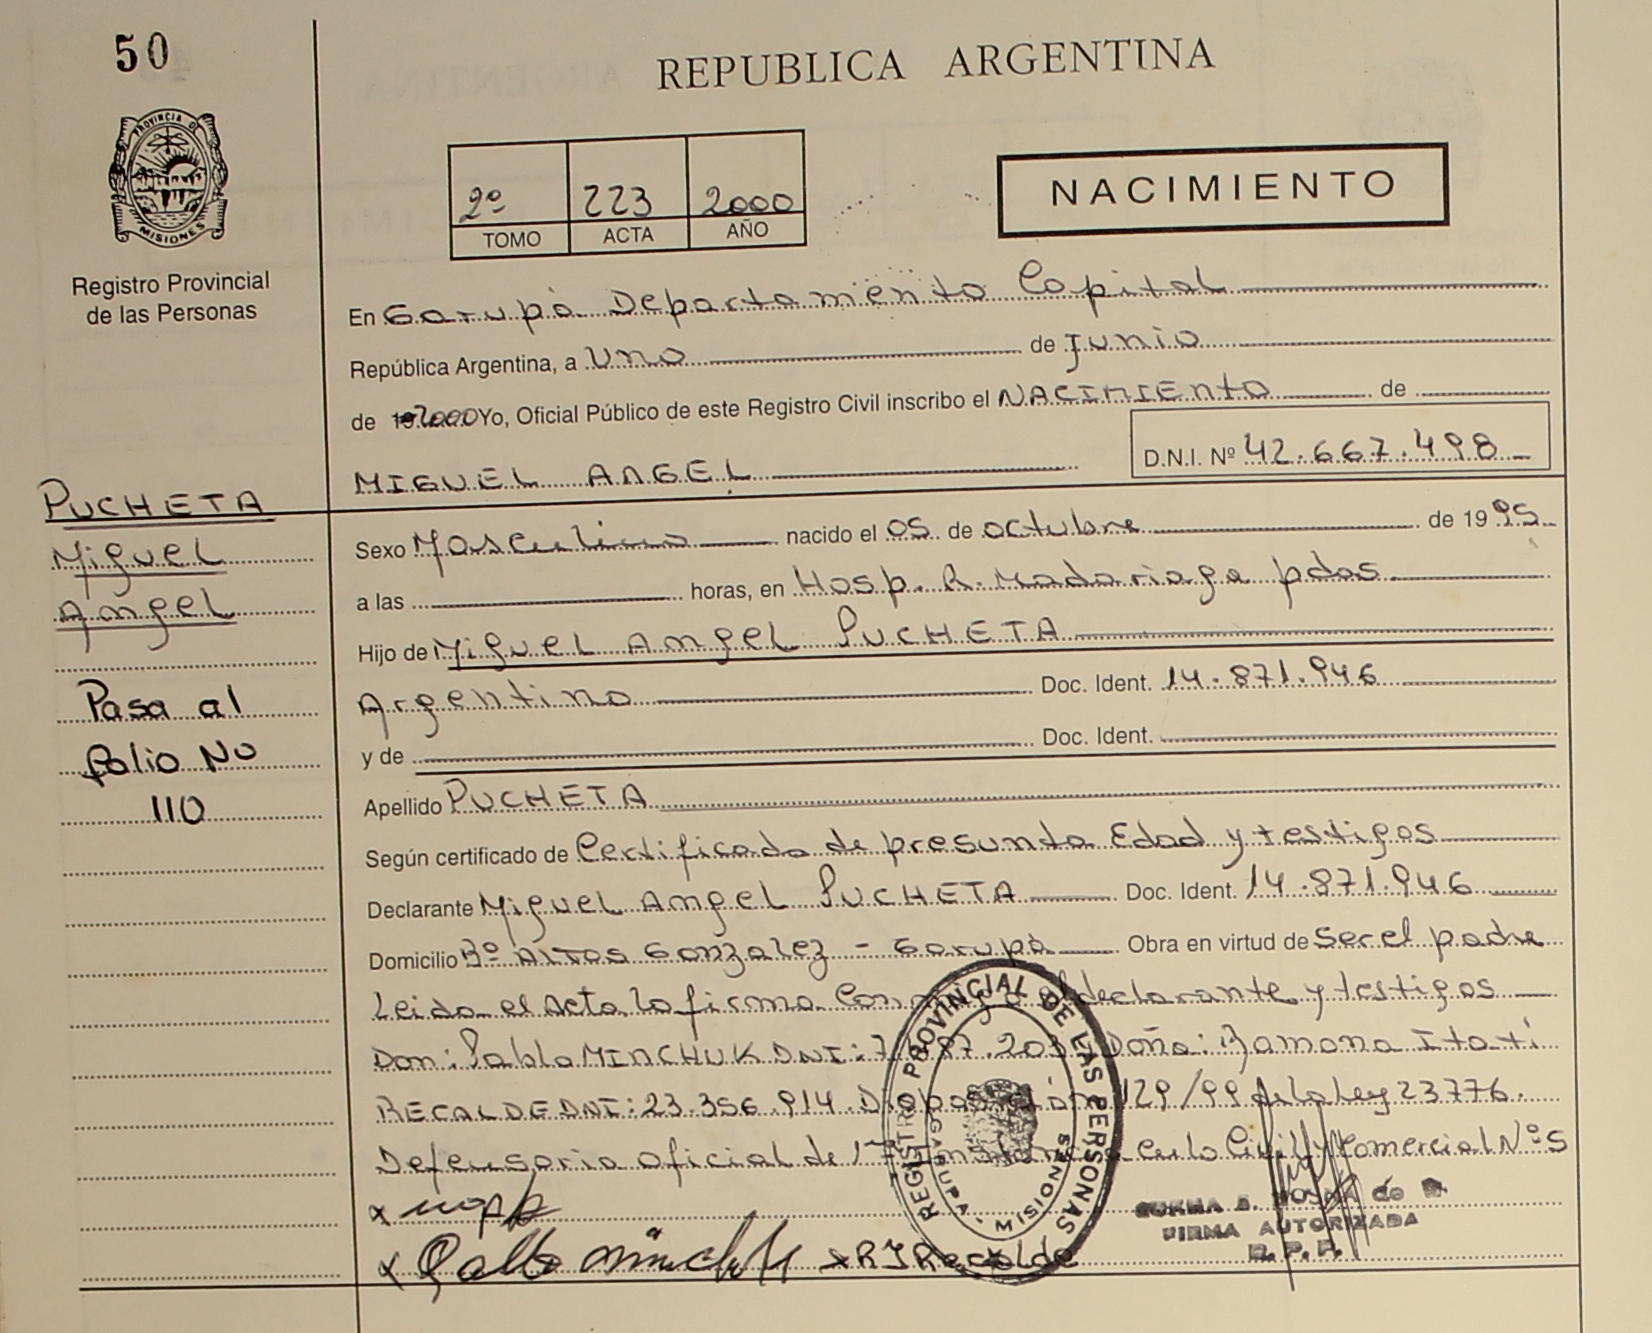 50
REPUBLICA ARGENTINA
PROVINCIA DE
MISIONES
Registro Provincial
de las Personas
2º 223 2000
TOMO ACTA AÑO
NACIMIENTO
En Garupà Departamento Capital
República Argentina, a uno de Junio
de 19 2000 Yo, Oficial Público de este Registro Civil inscribo el NACIMIENTO de
MIGUEL ANGEL D.N.I. Nº 42.667.498
PUCHETA
Miguel
Angel
Pasa al
folio No
110
Sexo Masculino nacido el 05 de octubre de 1995
a las horas, en Hosp. R. Madariaga pdas
Hijo de Miguel Angel PUCHETA
Argentino Doc. Ident. 14.871.946
y de Doc. Ident.
Apellido PUCHETA
Según certificado de Certificado de presunta Edad y testigos
Declarante Miguel Angel PUCHETA Doc. Ident. 14.871.946
Domicilio Bº ALTOS Gonzalez - Garupà Obra en virtud de Ser el padre
Leido el acta la firma el declarante y testigos
Don: Pablo MINCHUK DNI: Doña: Ramona Itatí
RECALDE DNI: 23.356.914. Disposición 129/99 de la Ley 23776.
Defensoria oficial de 1ª Instancia en lo Civil y Comercial Nº 5
REGISTRO PROVINCIAL DE LAS PERSONAS
GARUPA - MISIONES
x
x Pablo Minchuk x RI Recalde
FIRMA AUTORIZADA
R. P. P.